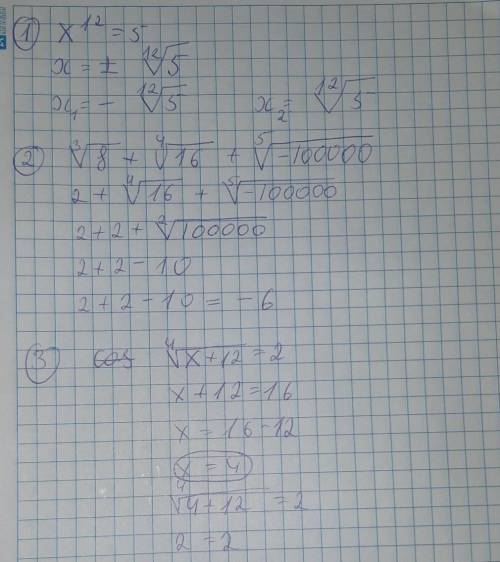 1 x¹² = 5
x = ± ¹²√5
x₁ = - ¹²√5 x₂ = ¹²√5
2 ³√8 + ⁴√16 + ⁵√-100000
2 + ⁴√16 + ⁵√-100000
2 + 2 + ⁵√100000
2 + 2 - 10
2 + 2 - 10 = - 6
3 ⁴√x + 12 = 2
x + 12 = 16
x = 16 - 12
x = 4
⁴√4 + 12 = 2
2 = 2